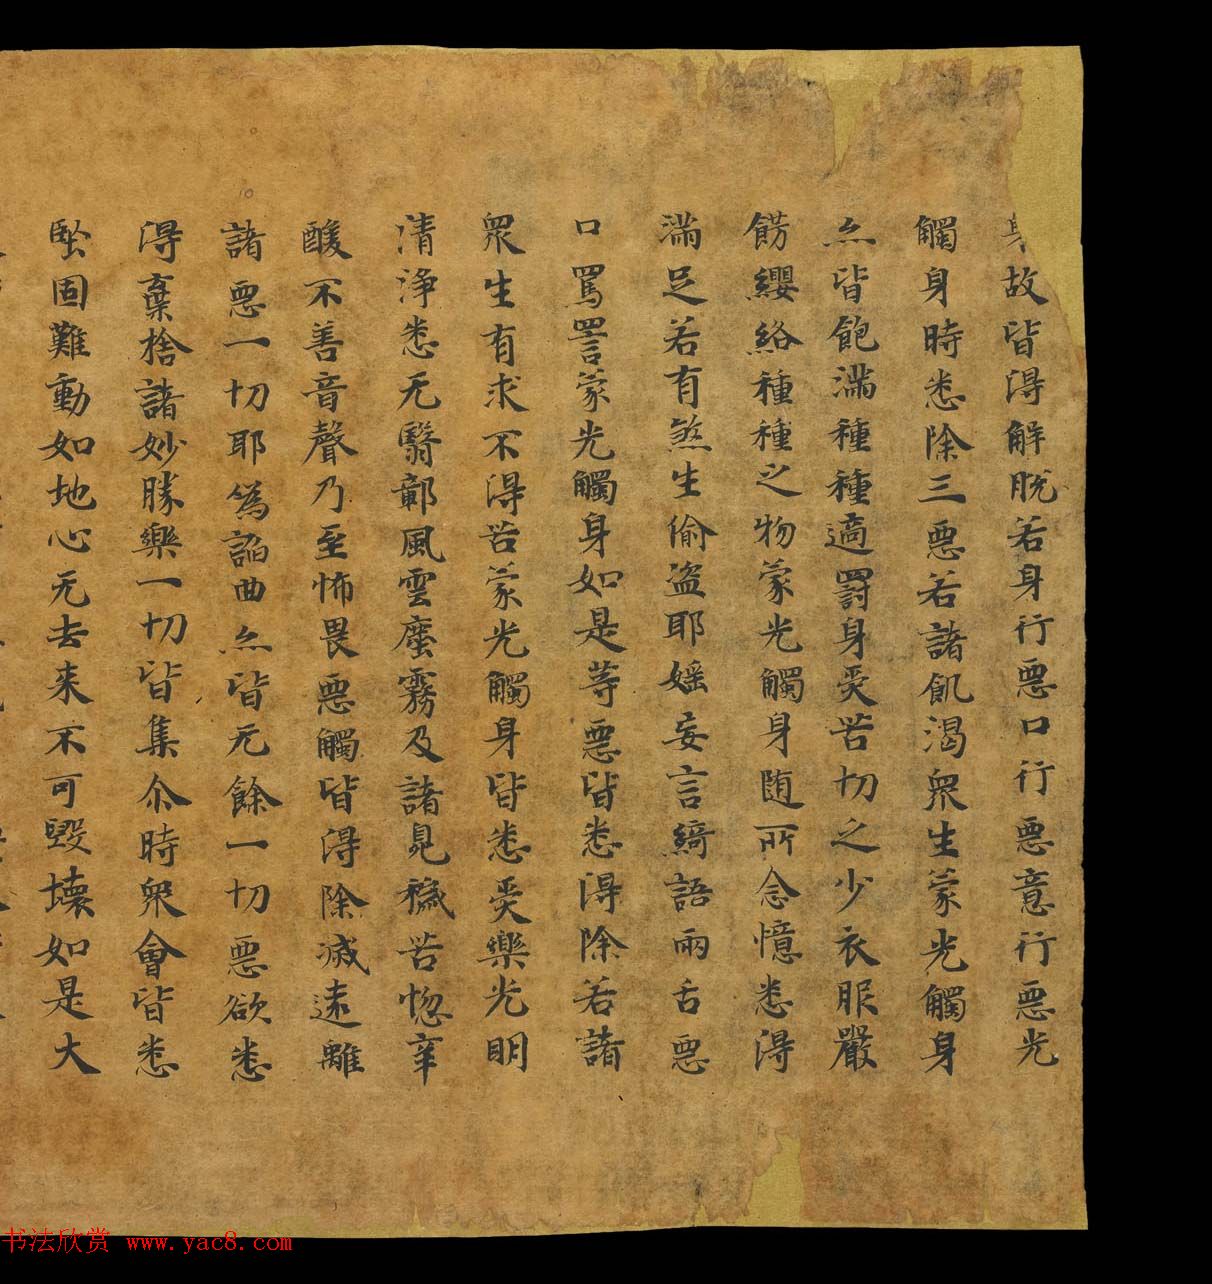 身故皆淂解脫若身行惡口行惡意行惡光
觸身時悉除三惡若諸飢渴眾生蒙光觸身
亦皆飽滿種種適罰身受苦切之少衣服嚴
餝纓絡種種之物蒙光觸身随所念憶悉淂
滿足若有煞生偷盗耶婬妄言綺語兩舌惡
口罵詈蒙光觸身如是等惡皆悉淂除若諸
眾生有求不淂苦蒙光觸身皆悉受樂光明
清淨悉无翳鄣風雲塵霧及諸見穢苦惱辛
酸不善音聲乃至怖畏惡觸皆淂除滅遠離
諸惡一切耶為諂曲亦皆无餘一切惡欲悉
淂棄捨諸妙勝樂一切皆集尒時眾會皆悉
堅固難動如地心无去来不可毀壞如是大
书法欣赏 www.yac8.com